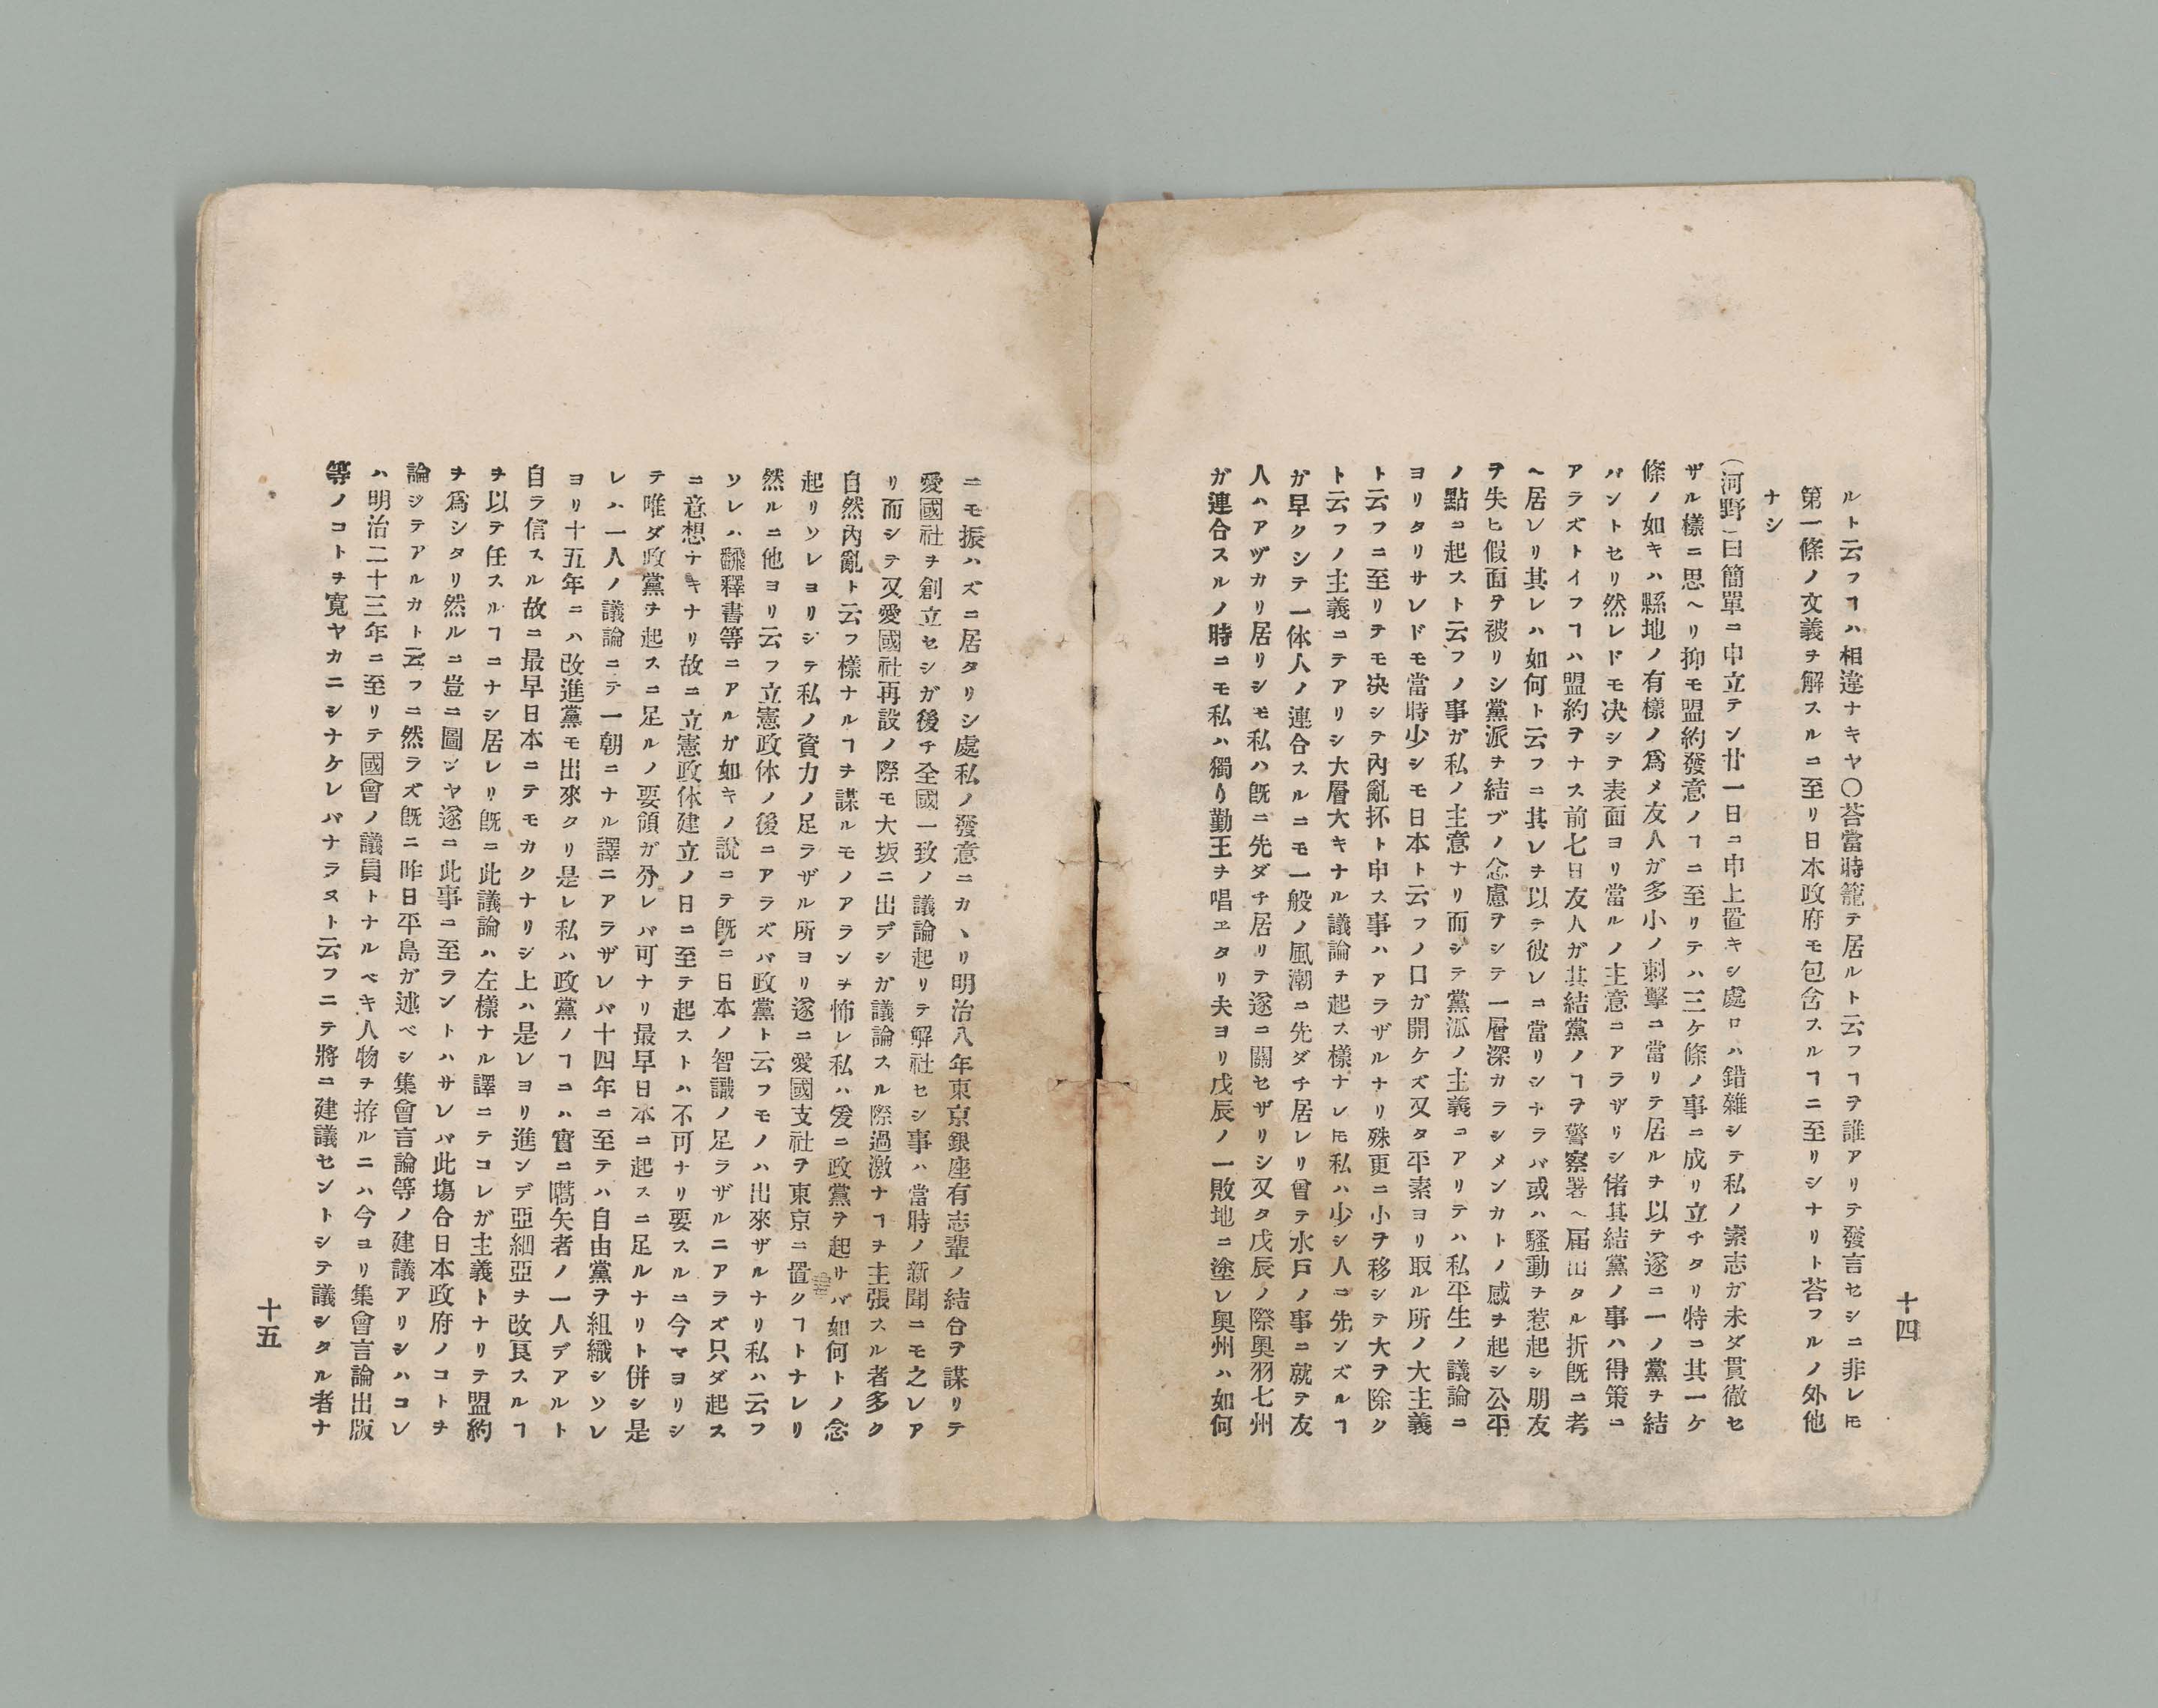 十四
ルト云フヿハ相違ナキヤ〇荅當時籠テ居ルト云フヿヲ誰アリテ發言セシニ非レ𪜈
第一條ノ文義ヲ解スルニ至リ日本政府モ包含スルヿニ至リシナリト荅フルノ外他
ナシ
(河野)曰簡單ニ申立テン廿一日ニ申上置キシ處ロハ錯雜シテ私ノ素志ガ未ダ貫徹セ
ザル樣ニ思ヘリ抑モ盟約發意ノヿニ至リテハ三ケ條ノ事ニ成リ立チタリ特ニ其一ケ
條ノ如キハ縣地ノ有樣ノ爲メ友人ガ多小ノ刺擊ニ當リテ居ルヲ以テ遂ニ一ノ黨ヲ結
バントセリ然レドモ决シテ表面ヨリ當ルノ主意ニアラザリシ偖其結黨ノ事ハ得策ニ
アラズトイフヿハ盟約ヲナス前七日友人ガ其結黨ノヿヲ警察署ヘ届出タル折旣ニ考
ヘ居レリ其レハ如何ト云フニ其レヲ以テ彼レニ當リシナラバ或ハ騷動ヲ惹起シ朋友
ヲ失ヒ假面ヲ被リシ黨派ヲ結ブノ念慮ヲシテ一層深カラシメンカトノ感ヲ起シ公平
ノ點ニ起スト云フノ事ガ私ノ主意ナリ而シテ黨派ノ主義ニアリテハ私平生ノ議論ニ
ヨリタリサレドモ當時少シモ日本ト云フノ口ガ開ケズ又タ平素ヨリ取ル所ノ大主義
ト云フニ至リテモ决シテ內亂抔ト申ス事ハアラザルナリ殊更ニ小ヲ移シテ大ヲ除ク
ト云フノ主義ニテアリシ大層大キナル議論ヲ起ス樣ナレ𪜈私ハ少シ人ニ先ンズルヿ
ガ早クシテ一体人ノ連合スルニモ一般ノ風潮ニ先ダチ居レリ曾テ水戶ノ事ニ就テ友
人ハアヅカリ居リシモ私ハ旣ニ先ダチ居リテ遂ニ關セザリシ又タ戊辰ノ際奧羽七州
ガ連合スルノ時ニモ私ハ獨リ勤王ヲ唱ヱタリ夫ヨリ戊辰ノ一敗地ニ塗レ奧州ハ如何
ニモ振ハズニ居タリシ處私ノ發意ニカヽリ明治八年東京銀座有志輩ノ結合ヲ謀リテ
愛國社ヲ創立セシガ後チ全國一致ノ議論起リテ解社セシ事ハ當時ノ新聞ニモ之レア
リ而シテ又愛國社再設ノ際モ大坂ニ出デシガ議論スル際過激ナヿヲ主張スル者多ク
自然內亂ト云フ樣ナルヿヲ謀ルモノアランヲ怖レ私ハ爰ニ政黨ヲ起サバ如何トノ念
起リソレヨリシテ私ノ資力ノ足ラザル所ヨリ遂ニ愛國支社ヲ東京ニ置クヿトナレリ
然ルニ他ヨリ云フ立憲政体ノ後ニアラズバ政黨ト云フモノハ出來ザルナリ私ハ云フ
ソレハ飜釋書等ニアルガ如キノ說ニテ旣ニ日本ノ智識ノ足ラザルニアラズ只ダ起ス
ニ意想ナキナリ故ニ立憲政体建立ノ日ニ至テ起ストハ不可ナリ要スルニ今マヨリシ
テ唯ダ政黨ヲ起スニ足ルノ要領ガ分レバ可ナリ最早日本ニ起スニ足ルナリト併シ是
レハ一人ノ議論ニテ一朝ニナル譯ニアラザレバ十四年ニ至テハ自由黨ヲ組織シソレ
ヨリ十五年ニハ改進黨モ出來タリ是レ私ハ政黨ノヿニハ實ニ嚆矢者ノ一人デアルト
自ラ信スル故ニ最早日本ニテモカクナリシ上ハ是レヨリ進ンデ亞細亞ヲ改良スルヿ
ヲ以テ任スルヿニナシ居レリ旣ニ此議論ハ左樣ナル譯ニテコレガ主義トナリテ盟約
ヲ爲シタリ然ルニ豈ニ圖ンヤ遂ニ此事ニ至ラントハサレバ此塲合日本政府ノコトヲ
論ジテアルカト云フニ然ラズ旣ニ昨日平島ガ述ベシ集會言論等ノ建議アリシハコレ
ハ明治二十三年ニ至リテ國會ノ議員トナルベキ人物ヲ拵ルニハ今ヨリ集會言論出版
等ノコトヲ寬ヤカニシナケレバナラヌト云フニテ將ニ建議セントシテ議シタル者ナ
十五